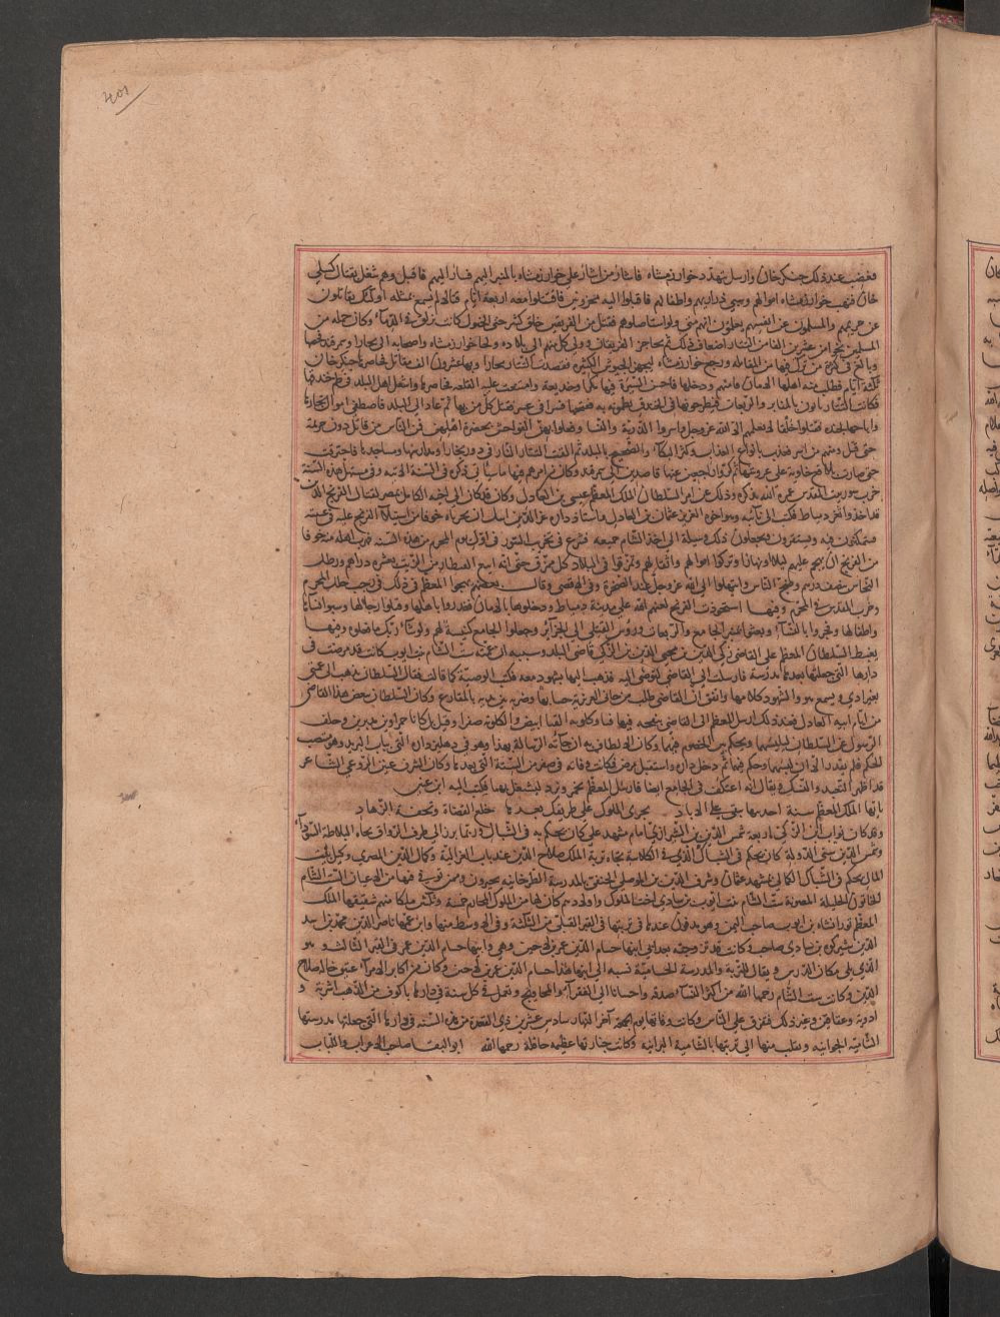 ٤٥١
فغضب عند ذلك جنكزخان وارسل يتهدد خوارزمشاه فاشار من اشار على خوارزمشاه بالمسير اليهم فسار اليهم فاقبل وهم في شغل بقتال كشلي
خان فنهب خوارزمشاه اموالهم وسبى ذراريهم واطفالهم فاقبلوا اليه محروبين فاقتتلوا معه اربعة ايام قتالا لم يسمع بمثله اولئك يقاتلون
عن حريمهم والمسلمون عن انفسهم يعلمون انهم متى ولوا استاصلوهم فقتل من الفريقين خلق كثير حتى ان الخيول كانت تزلق في الدماء وكان جملة من
المسلمين نحوا من عشرين الفا من التتار اضعاف ذلك ثم تحاجز الفريقان وولى كل منهم الى بلاده ولجا خوارزمشاه واصحابه الى بخارا وسمرقند فحصنها
وبالغ في كثرة من ترك فيها من المقاتلة ورجع خوارزمشاه ليجهز الجيوش الكثيرة فقصدت التتار بخارا وبها عشرون الف مقاتل فحاصرها جنكزخان
ثلاثة ايام فطلب منه اهلها الامان فامنهم ودخلها فاحسن السيرة فيها مكرا وخديعة وامتنعت عليه القلعة فحاصرها واشغل اهل البلد في طم خندقها
فكانت التتار ياتون بالمنابر والربعات فيطرحونها في الخندق يطمونه به ففتحها قسرا في عشر فقتل كل من بها ثم عاد الى البلد فاصطفى اموال تجارها
واباحها لجنده فقتلوا خلقا لا يعلمهم الا الله عز وجل واسروا الذرية والنسا وفعلوا بهن الفواحش بحضرة اهليهن فمن الناس من قاتل دون حرمه
حتى قتل ومنهم من اسر فعذب بانواع العذاب وكثر البكاء والضجيج بالبلد ثم القت التتار النار في دور بخارا ومدارسها ومساجدها فاحترقت
حتى صارت بلاقع خاوية على عروشها ثم كروا راجعين عنها قاصدين الى سمرقند وكان من امرهم فيها ما ياتي ذكره في السنة الاتية وفي مستهل هذه السنة
خرب سور بيت المقدس عمره الله بذكره وذلك عن امر السلطان الملك المعظم عيسى بن العادل وكان قد كان الى اخيه الكامل بمصر لقتال الفرنج الذين
قد اخذوا ثغر دمياط فكتب الى نائبه وهو اخوه العزيز عثمان بن العادل واستاذ داره عز الدين ايبك ان يخرباه خوفا من استيلاء الفرنج عليه في غيبته
فيتمكنون فيه ويستقرون ويجعلون ذلك وسيلة الى اخذ الشام جميعه فشرع في تخريب السور في اول يوم المحرم من هذه السنة فهرب اهله منه خوفا
من الفرنج ان يهجم عليهم ليلا او نهارا وتركوا اموالهم واثاثهم وتمزقوا في البلاد كل ممزق حتى انه ابيع القنطار من الزيت بعشرة دراهم ورطل
النحاس بنصف درهم وضج الناس وابتهلوا الى الله عز وجل عند الصخرة وفي الاقصى وقال بعضهم يهجوا المعظم في ذلك في رجب حلل المحرم
وخرب القدس في المحرم وفيها استحوذت الفرنج لعنهم الله على مدينة دمياط ودخلوها بالامان فغدروا باهلها وقتلوا رجالها وسبوا نساءها
واطفالها وفجروا بالنساء وبعثوا بمنبر الجامع والربعات ورؤس القتلى الى الجزائر وجعلوا الجامع كنيسة لهم ولو شاء ربك ما فعلوه وفيها
تغيظ السلطان المعظم على القاضي زكي الدين بن محيي الدين بن الزكي قاضي البلد وسببه ان عمته ست الشام بنت ايوب كانت قد مرضت في
دارها التي جعلتها بعدها مدرسة فارسلت الى القاضي لتوصي اليه فذهب اليها بشهود معه فكتب الوصية كما قالت فقال السلطان يذهب الى عمتي
بغير اذني ويسمع هو والشهود كلامها واتفق ان القاضي طلب من جابي العزيزية حسابها وضربه بين يديه بالمقارع وكان السلطان يبغض هذا القاضي
من ايام ابيه العادل فعند ذلك ارسل المعظم الى القاضي ببقجة فيها قباء وكلوته القبا ابيض والكلوته صفرا وقيل بل كانا حمراوين مدرنين وحلف
الرسول عن السلطان ليلبسنهما ويحكم بين الخصوم فيهما وكان من لطف الله به ان جاءته الرسالة بهذا وهو في دهليز داره التي بباب البريد وهو منتصب
للحكم فلم يقدر الا ان لبسهما وحكم فيهما ثم دخل داره واستقبل مرض فكانت وفاته في صفر من السنة التي بعدها وكان الشرف عنين الزرعي الشاعر
قد اظهر التعبد والنسك ويقال انه اعتكف في الجامع ايضا فارسل المعظم بخمر ونرد ليشتغل بها فكتب اليه ابن عنين
يا ايها الملك المعظم سنة احدثتها تبقى على الاباد تجري الملوك على طريقك بعدها خلع القضاة وتحفة الزهاد
وقد كان نواب ابن الزكي اربعة شمس الدين بن الشيرازي امام مشهد علي كان يحكم به في الشباك وربما برز الى طرف الرواق تجاه البلاطة السوداء
وشمس الدين سني الدولة كان يحكم في الشباك الذي في الكلاسة تجاه تربة الملك صلاح الدين عند باب الغزالية وكمال الدين المصري وكيل بيت
المال يحكم في الشباك الكمالي بمشهد عثمان وشرف الدين بن الموصلي الحنفي بالمدرسة الطرخانية بجيرون وممن توفي فيها من الاعيان الست الشام
الخاتون الجليلة المصونة ست الشام بنت ايوب بن شادي اخت الملوك واولادهم كان لها من الملوك المحارم خمسة وثلاثين ملكا منهم شقيقها الملك
المعظم تورانشاه بن ايوب صاحب اليمن وهو مدفون عندها في تربتها في القبر القبلي من الثلاثة وفي الاوسط منها ابن عمها ناصر الدين محمد بن اسد
الدين شيركوه بن شادي صاحب وكانت قد تزوجته بعد ابي ابنها حسام الدين عمر بن لاجين وهي وابنها حسام الدين عمر في القبر الثالث و هو
الذي يلي مكان الدرس ويقال للتربة والمدرسة الحسامية نسبة الى ابنها هذا حسام الدين عمر بن لاجين وكان من اكابر الامراء عند خاله صلاح
الدين وكانت ست الشام رحمها الله من اكثر النساء صدقة واحسانا الى الفقراء والمحاويج وتعمل في كل سنة في دارها بالوف من الذهب اشربة و
ادوية وعقاقير وغير ذلك فتفرق على الناس وكانت وفاتها يوم الجمعة آخر النهار سادس عشرين ذي القعدة من هذه السنة في دارها التي جعلتها مدرستها
الشامية الجوانية ونقلت منها الى تربتها بالشامية البرانية وكانت جنازتها عظيمة حافلة رحمها الله ابو البقا صاحب الاعراب واللباب